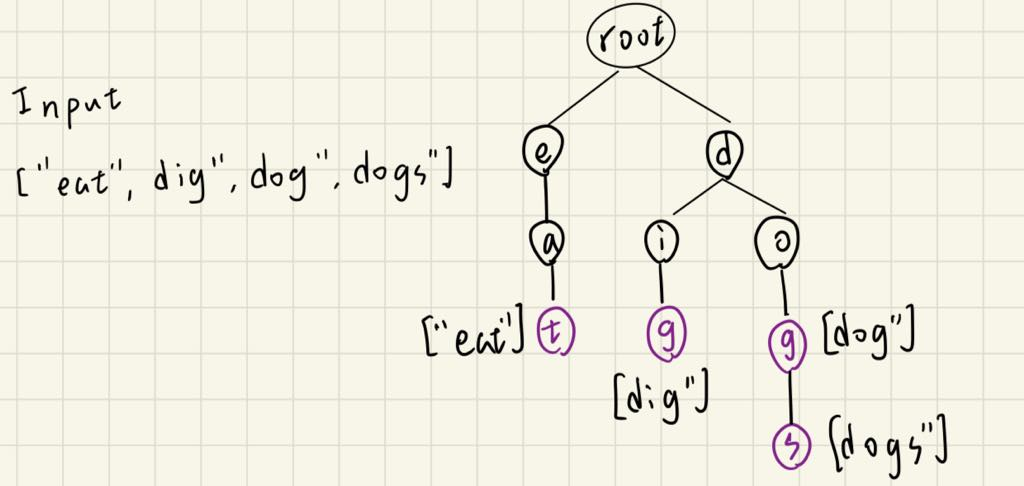 root
Input
["eat", dig", dog", dogs"]
e d
a i o
["eat"] t g g [dog"]
[dig"]
s [dogs"]